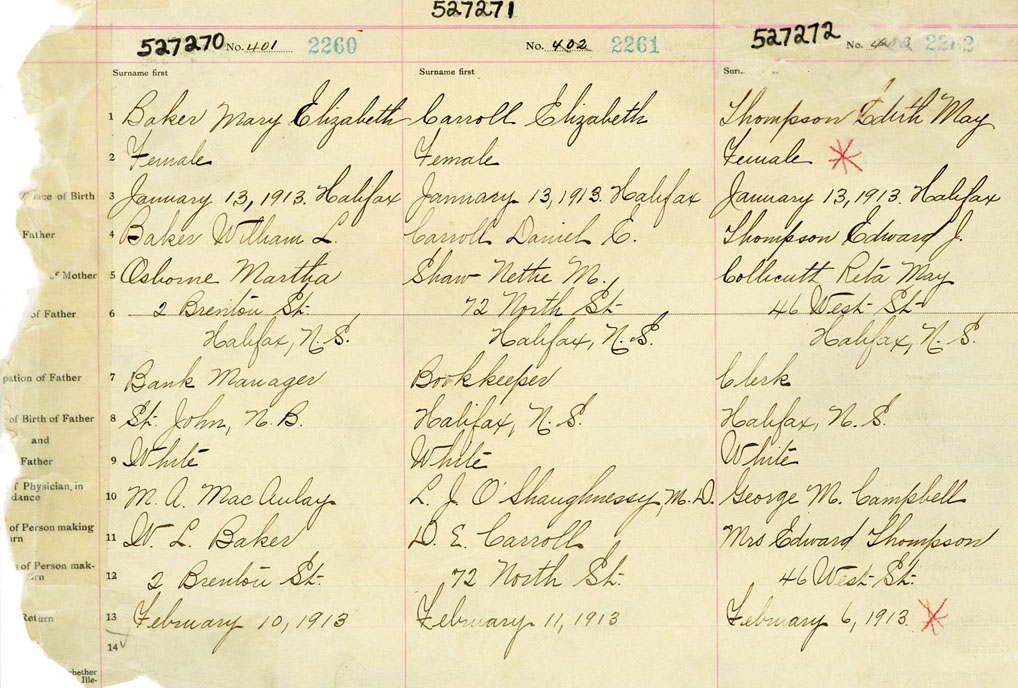 527271
527270 No. 401 2260
No. 402 2261
527272 No. 2262
Surname first
Surname first
Sur
1 Baker Mary Elizabeth Carroll Elizabeth Thompson Edith May
2 Female Female Female
ace of Birth 3 January 13, 1913. Halifax January 13, 1913. Halifax January 13, 1913. Halifax
Father 4 Baker William L. Carroll Daniel E. Thompson Edward J.
of Mother 5 Osborne Martha Shaw Nettie M. Collicutt Reta May
of Father 6 2 Brenton St. 72 North St. 46 West St.
Halifax, N.S. Halifax, N.S. Halifax, N.S.
pation of Father 7 Bank Manager Bookkeeper Clerk
of Birth of Father 8 St. John, N.B. Halifax, N.S. Halifax, N.S.
and
Father 9 White White White
f Physician, in
dance 10 M. A. MacAulay L. J. O'Shaughnessy M.D. George M. Campbell
of Person making
urn 11 W. L. Baker D. E. Carroll Mrs Edward Thompson
of Person mak-
12 2 Brenton St. 72 North St. 46 West St.
Return 13 February 10, 1913 February 11, 1913 February 6, 1913.
14
hether
Ille-